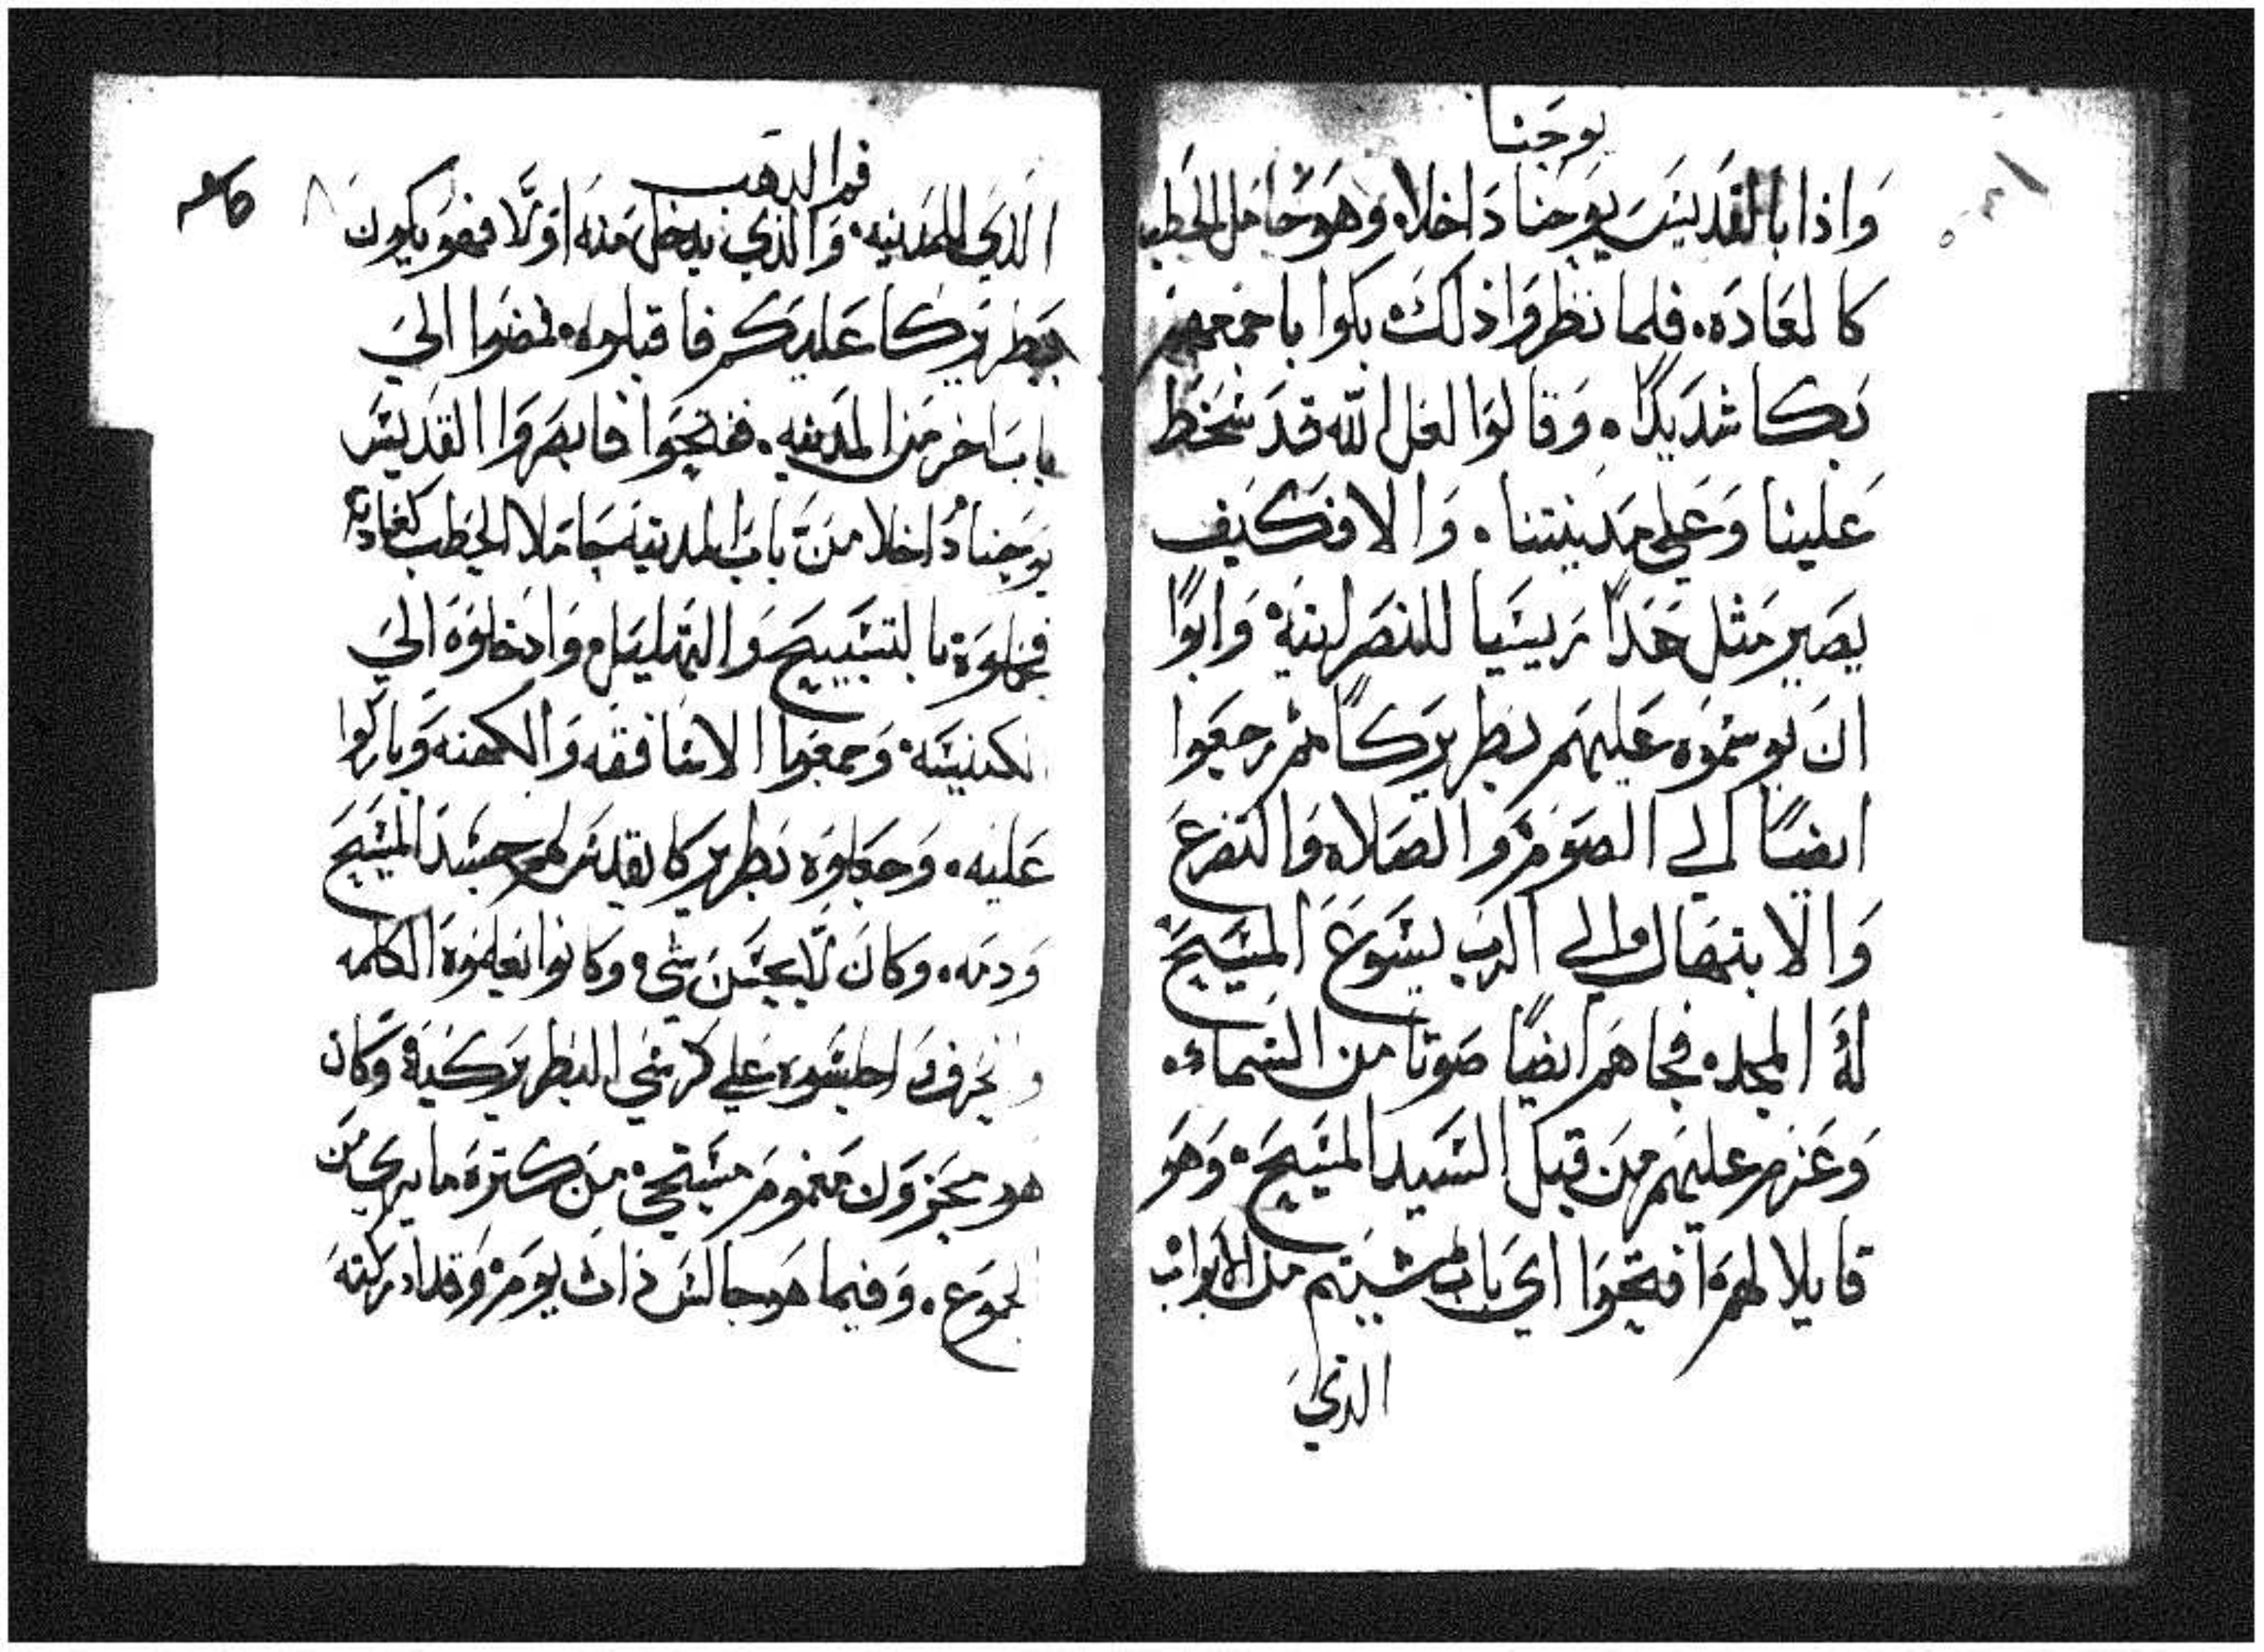 يوحنا
واذا بالقديس يوحنا داخلاه وهو حامل الحطب
كالعاده. فلما نظروا ذلك بكوا باجمعهم
بكا شديدًا. وقالوا لعل الله قد سخط
علينا وعلي مدينتنا. والا فكيف
يصير مثل هدا رييسًا للنصرانية وابوا
ان يوسموه عليهم بطريركًا ثم رجعوا
ايضًا الي الصوم والصلاه والتضرع
والابتهال الي الرب يسوع المسيح
له المجد. فجاهم ايضًا صوتا من السماء.
وعزم عليهم من قبل السيد المسيح. وهو
قايلا لهم افتحوا اي باب شيتم من الابواب
الذي
فم الدهب
الذي للمدينه. والذي يدخل منه اولا فهو يكون
بطريركا عليكم فاقبلوه. فمضوا الي
باب اخر من المدينه. ففتحوا فابصروا القديس
يوحنا داخلا من باب المدينه حاملا الحطب كعادته
فحملوه بالتسبيح والتهليل وادخلوه الي
الكنيسه. وجمعوا الاساقفه والكهنه وباركوا
عليه. وجعلوه بطريركا يقدس لهم جسد المسيح
ودمه. وكان لا يحسن شي وكانوا يعلموه الكلمه
واجلسوه علي كرسي البطريركية وكان
هو محزون مغموم مستحي من كترة ما يري من
الجموع. وفيما هو جالس ذات يوم وقد ادركته